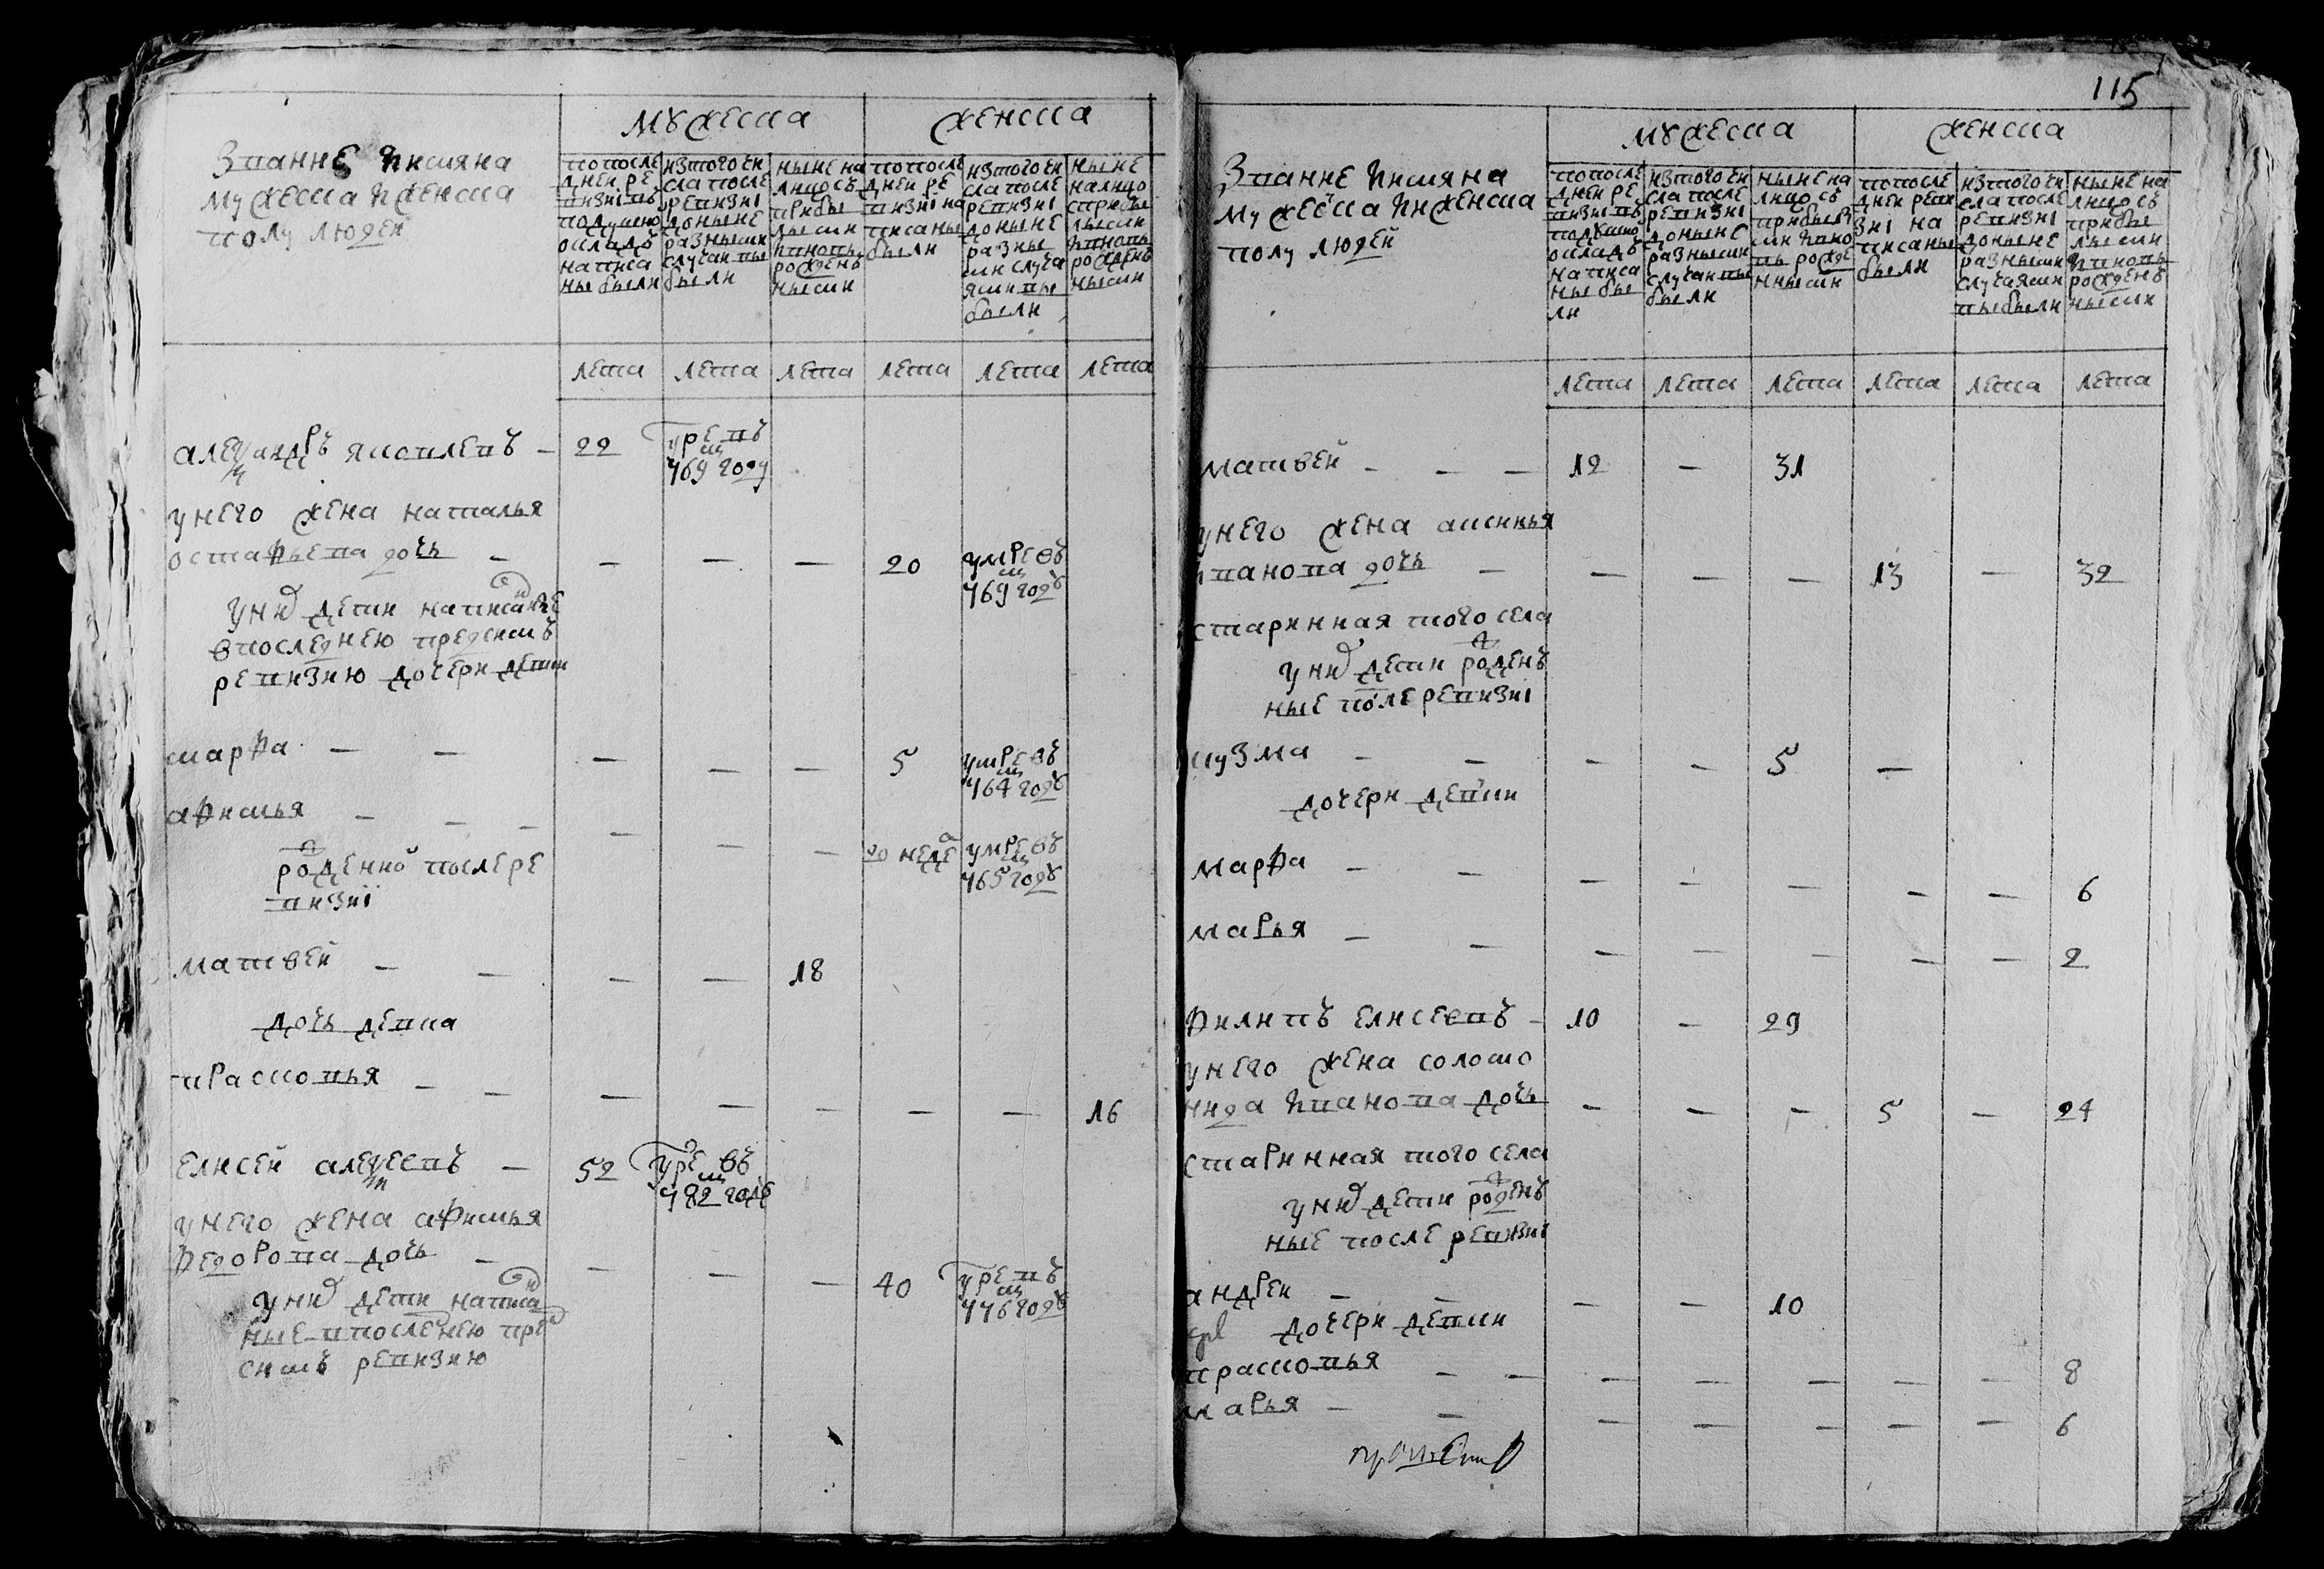 Звание и имяна
мужеска и женска
полу людей
мужеска
женска
по после
дней ре
визиї въ
подушно
окладъ
написа
ны были
изтого чи
сла после
ревизиї
доныне
разными
случаи вы
были
ныне на
лицо съ
прибы
лыми
и вновь
рожденъ
ными
по после
дней ре
визиї на
писаны
были
изтого чи
сла после
ревизиї
доныне
разны
ми случа
ями вы
были
ныне
налицо
с прибы
лыми
и вновь
рожденъ
ными
лета лета лета лета лета лета
александръ яковлевъ — 22 умре въ
769 году
у него жена наталья
остафьева дочь — — — — 20 умре въ
769 годъ
у них дети написаные
в последнею пред симъ
ревизию дочери девки
марфа — — — — — 5 умре въ
764 годъ
афимья — — — — — — 20 недел умре въ
765 годъ
рожденной после ре
визиї
матвей — — — — 18
дочь девка
прасковья — — — — — — — 16
елисей алексеевъ — 52 умре въ
782 годе
у него жена афимья
федорова дочь — — — — 40 умре въ
776 годъ
у них дети написа
ные в последнею пред
симъ ревизию
115
Звание и имяна
мужеска и женска
полу людей
мужеска
женска
по после
дней ре
визиї въ
подушно
окладъ
написа
ны бы
ли
изтого чи
сла после
ревизиї
доныне
разными
случаи вы
были
ныне на
лицо съ
прибылы
ми и вно
въ рожде
нными
по после
дней реви
зиї на
писаны
были
изтого чи
сла после
ревизиї
доныне
разными
случаями
выбыли
ныне на
лицо съ
прибы
лыми
и вновь
рожденъ
ными
лета лета лета лета лета лета
матвей — — — 12 — 31
у него жена аксинья
иванова дочь — — — — 13 — 32
старинная того села
у них дети рожденъ
ные после ревизиї
кузма — — — — 5 —
дочери девки
марфа — — — — — — — 6
марья — — — — — — — 2
филипъ елисеевъ — 10 — 29
у него жена соломо
нида иванова дочь — — — 5 — 24
старинная того села
у них дети рожденъ
ные после ревизиї
андрей — — — — 10
дочери девки
прасковья — — — — — — — 8
марья — — — — — — — 6